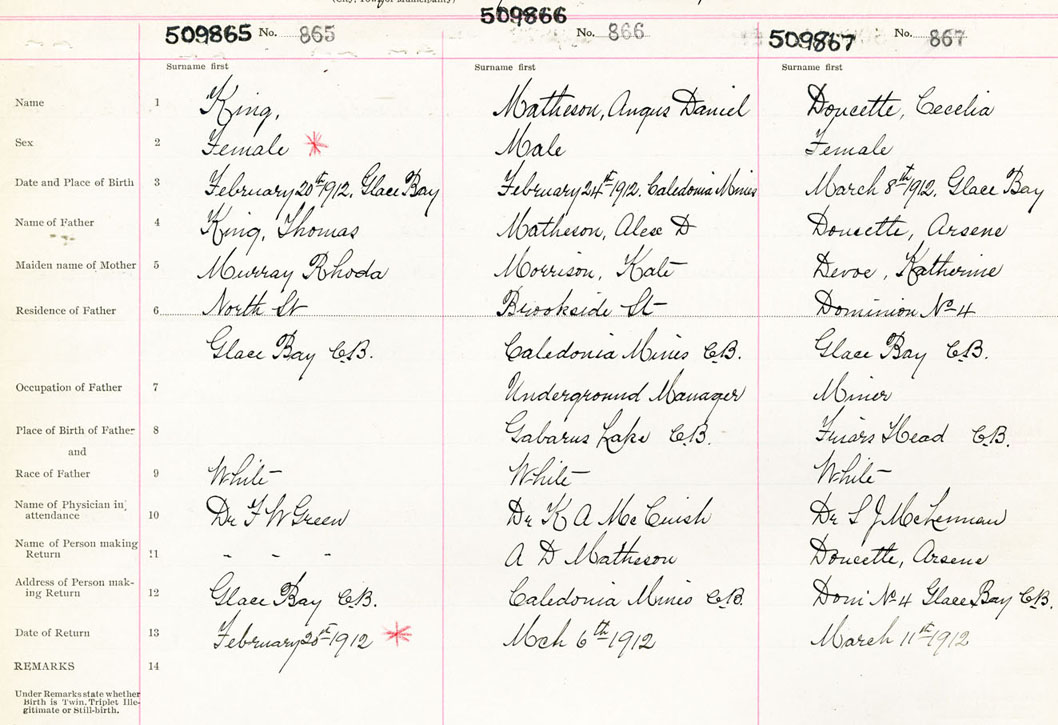 (City, Town or Municipality)
509865 No. 865 509866 No. 866 509867 No. 867
Surname first Surname first Surname first
Name 1 King, Matheson, Angus Daniel Doucette, Cecelia
Sex 2 Female * Male Female
Date and Place of Birth 3 February 20th 1912. Glace Bay February 24th 1912. Caledonia Mines March 8th 1912. Glace Bay
Name of Father 4 King, Thomas Matheson, Alex D Doucette, Arsene
Maiden name of Mother 5 Murray Rhoda Morrison, Kate Devoe, Katherine
Residence of Father 6 North St Brookside St Dominion No 4
Glace Bay C.B. Caledonia Mines C.B. Glace Bay C.B.
Occupation of Father 7 Underground Manager Miner
Place of Birth of Father 8 Gabarus Lake C.B. Friars Head C.B.
and
Race of Father 9 White White White
Name of Physician in attendance 10 Dr F W Green Dr K A McCuish Dr S J McLennan
Name of Person making Return 11 - - - A D Matheson Doucette, Arsene
Address of Person making Return 12 Glace Bay C.B. Caledonia Mines C.B. Dom' No 4 Glace Bay C.B.
Date of Return 13 February 1912 * Mch 6th 1912 March 11th 1912
REMARKS 14
Under Remarks state whether
Birth is Twin. Triplet Ille-
gitimate or Still-birth.